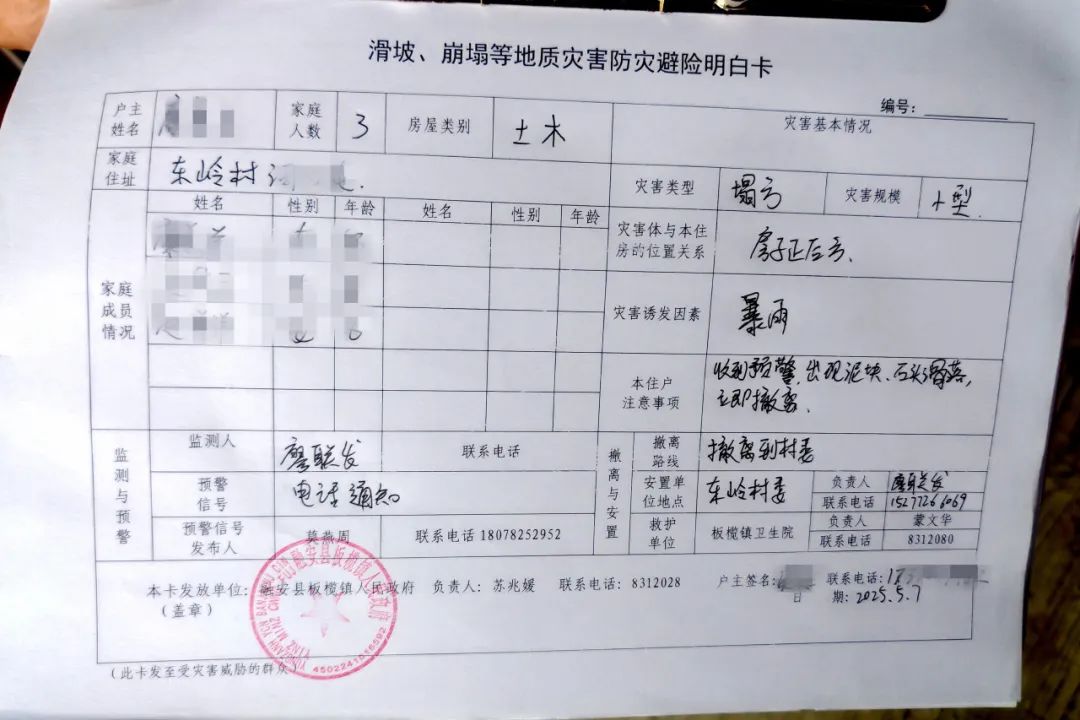 滑坡、崩塌等地质灾害防灾避险明白卡
编号：
户主姓名
家庭人数 3
房屋类别 土木
灾害基本情况
家庭住址 东岭村
灾害类型 塌方
灾害规模 小型.
姓名 性别 年龄 姓名 性别 年龄
家庭成员情况
灾害体与本住房的位置关系 房子正后方.
灾害诱发因素 暴雨
本住户注意事项 收到预警,出现泥块、石头滑落,
立即撤离.
监测与预警
监测人 廖联发 联系电话
预警信号 电话通知
预警信号发布人 莫燕周 联系电话 18078252952
撤离与安置
撤离路线 撤离到村委
安置单位地点 东岭村委 负责人 廖联发
联系电话 15277266069
救护单位 板榄镇卫生院 负责人 蒙文华
联系电话 8312080
本卡发放单位：融安县板榄镇人民政府 负责人：苏兆媛 联系电话：8312028 户主签名： 联系电话：
（盖章） 日期：2025.5.7
融安县板榄镇人民政府
（此卡发至受灾害威胁的群众）